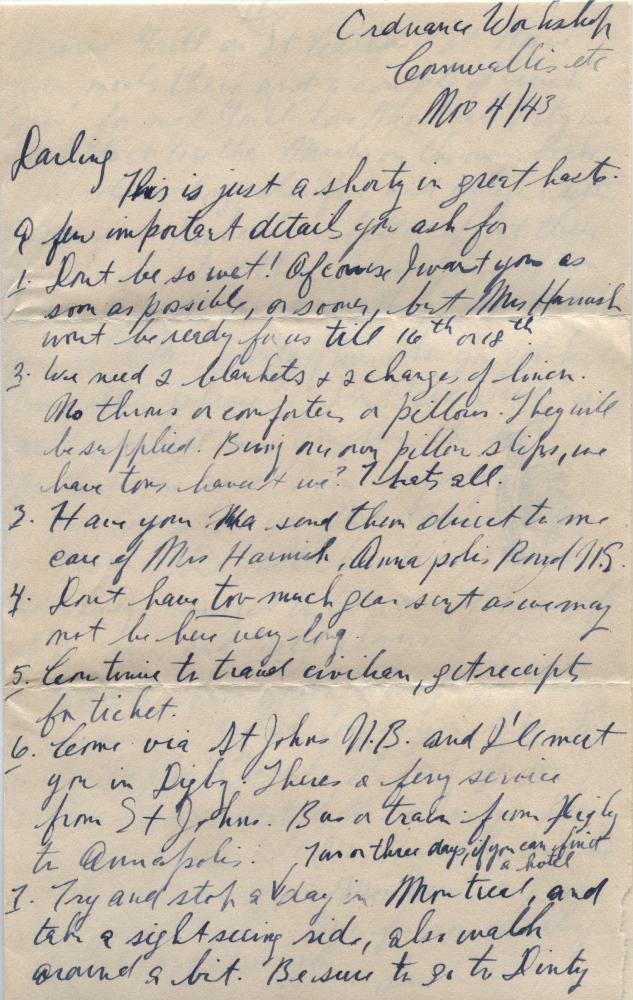 Ordnance Workshop
Cornwallis etc
Nov 4/43
Darling
This is just a shorty in great haste.
A few important details you ask for
1. Dont be so wet! Of course I want you as
soon as possible, or sooner, but Mrs Harnish
wont be ready for us till 16th or 18th.
2. We need 2 blankets & 2 changes of linen.
No throws or comforters or pillows. They will
be supplied. Bring our own pillow slips, we
have tons havent we? Thats all.
3. Have your Ma send them direct to me
care of Mrs Harnish, Annapolis Royal N.S.
4. Dont have too much gear sent as we may
not be here very long.
5. Continue to travel civilian, get receipts
for ticket.
6. Come via St Johns N.B. and I'le meet
you in Digby. Theres a ferry service
from St Johns. Bus or train from Digby
to Annapolis.
Two or three days, if you can find
a hotel
7. Try and stop a day in Montreal, and
take a sightseeing ride, also walk
around a bit. Be sure to go to Dinty